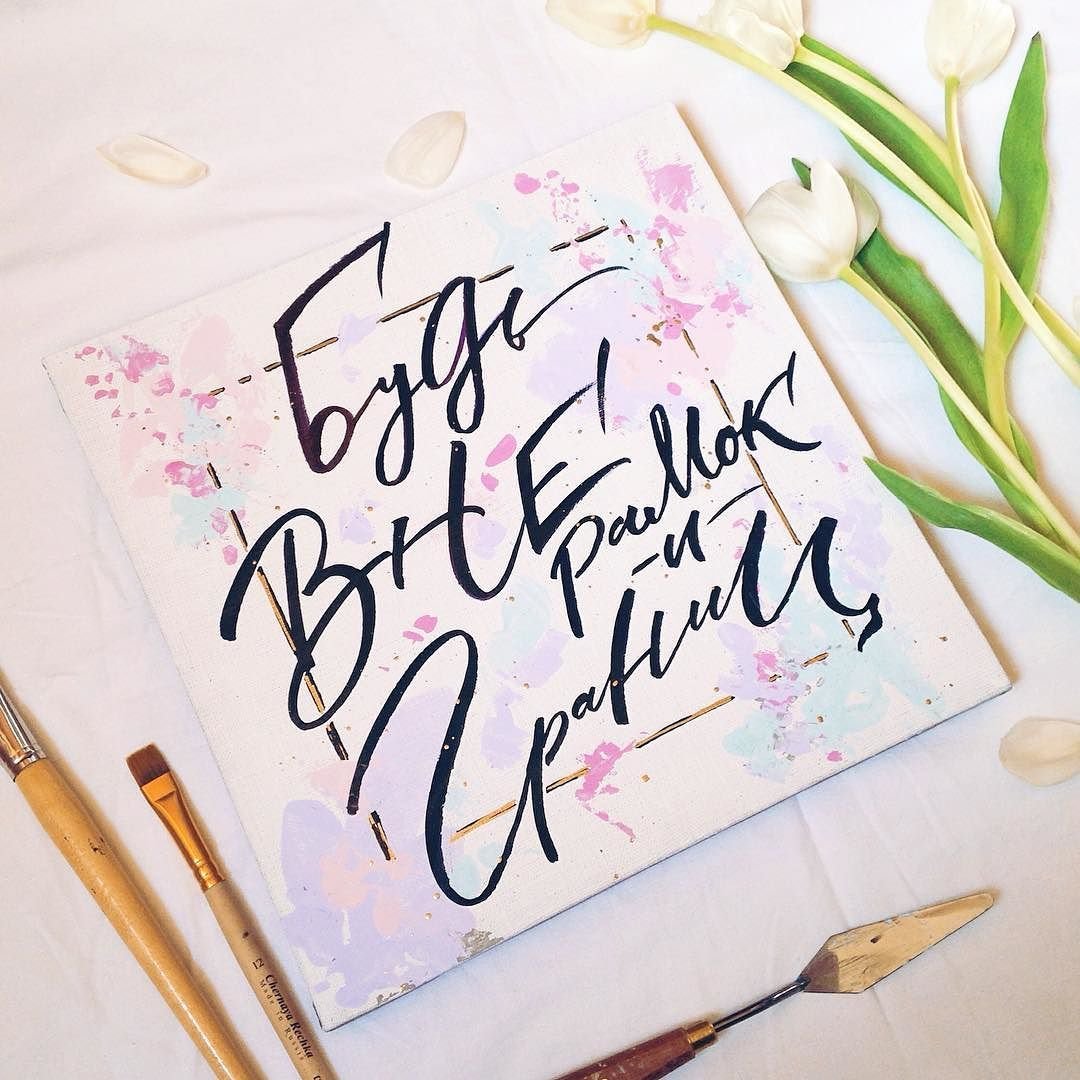 Будь
ВНЕ
рамок
-и-
границ
12
Chernaya Rechka
Made in Russia